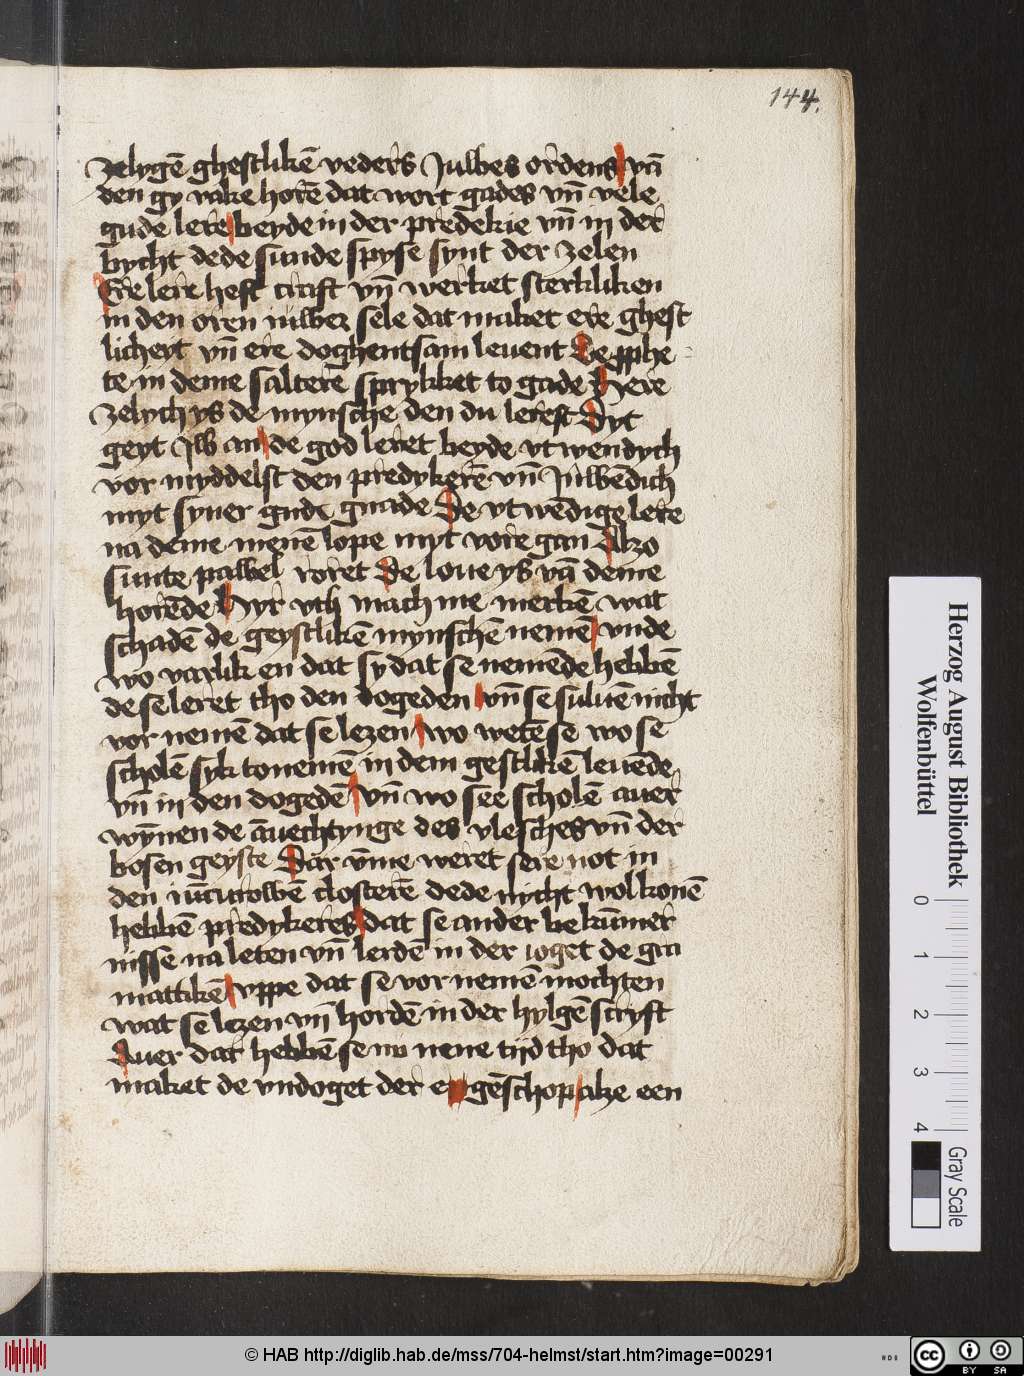 144.
zelygē ghestlikē veders Juwes ordens vā
den gy vake horē dat wort gades vn̄ vele
gude lere beyde in der predekie vn̄ in der
bycht dede sunde spyse synt der zelen
Ere lere heft craft vn̄ werket sterkliken
in den oren iuwer sele dat maket ere ghest
licheyt vn̄ ere doghentsam leuent De pphe
te in deme salterē sprykket to gade Here
zelych ys de mynsche den du lerest Dyt
geyt Jw an de god leret beyde vtwendych
vor myddelst den predykerē vn̄ Juwēdich
myt syner gude gnade De vtwēdige lere
na deme menē lope myt vore gan Alzo
sunte pawel roret De loue ys vā deme
horēde Hyr vth mach me merkē wat
schadē de geystlikē mynschē nemē vnde
wo varlik en dat sy dat se nemēde hebbē
de se leret tho den dogeden vn̄ se suluē nicht
vor nemē dat se lezen wo wetē se wo se
scholē syk to nemē in dem gestlikē leuēde
vn̄ in den dogedē vn̄ wo see scholē auer
wȳnen de āuechtynge des vlesches vn̄ der
bosen geyste Dar v̄me weret sere not in
den iūcurowē closterē dede nycht wol konē
hebbē predykeres dat se ander bekūmer
nisse na leten vn̄ lerdē in der ioget de gra
mattikē vppe dat se vor nemē mochten
wat se lezen vn̄ hordē in der hylgē scryft
Auer dat hebbē se nu nene tijd tho dat
maket de vndoget der e gēschop alze een
Herzog August Bibliothek
Wolfenbüttel
0 1 2 3 4
Gray Scale
© HAB http://diglib.hab.de/mss/704-helmst/start.htm?image=00291
HAB
cc BY SA